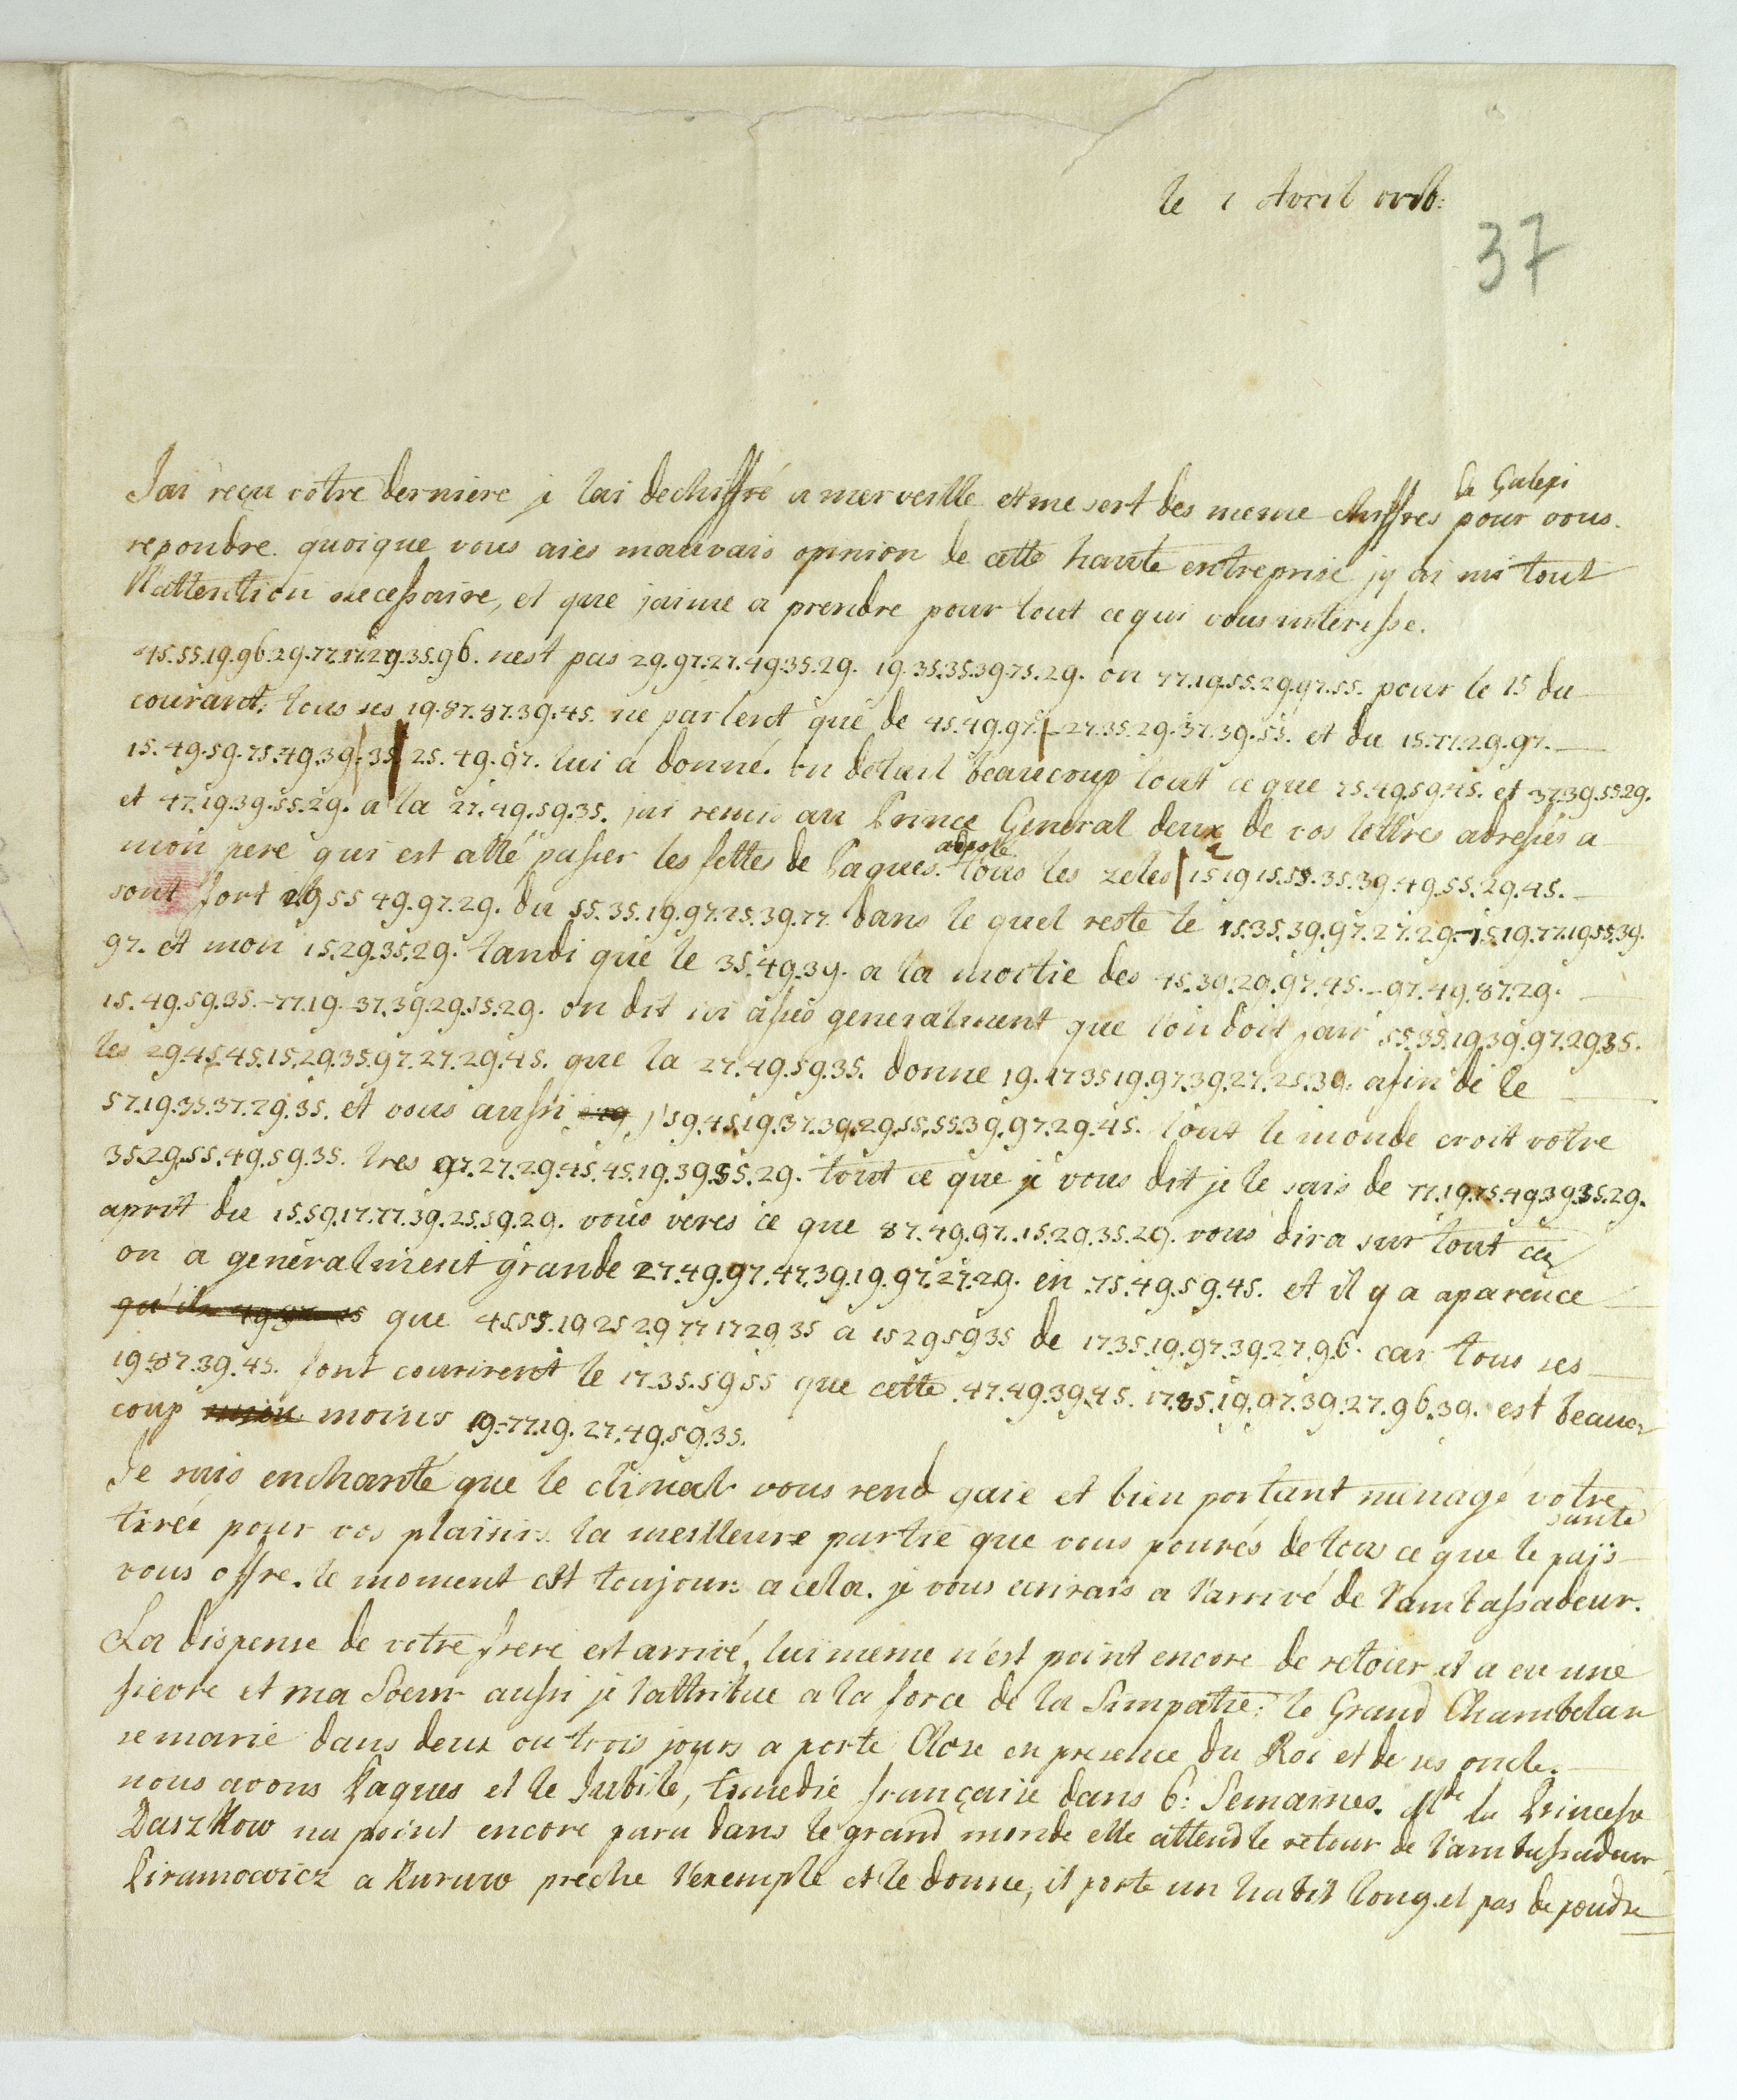 le 1 Avril
37
la Galezi
J'ai reçu votre derniere je l'ai dechiffré a merveille et me sert des meme chiffres pour vous.
repondre. quoique vous aiés mauvais opinion de cette haute entreprise j'y ai mi tout
l'attention necessaire, et que j'aime a prendre pour tout ce qui vous interesse.
45.55.19.96.29.77.17.29.35.96. n'est pas 29.97.27.49.35.29. 19.35.35.39.75.29. on 77.19.55.29.97.55. pour le 15 du
courant. tous ses 19.87.87.39.45. ne parlent que de 45.49.97. 27.35.29.37.39.55. et du 15.77.29.97.
15.49.59.75.49.39.35 25.49.97. lui a donné. on detail beaucoup tout ce que 75.49.59.45. et 37.39.55.29.
et 47.19.39.55.29. a la 27.49.59.35. j'ai remis au Prince General deux de vos lettres adressés a
mon pere qui est allé passer les fettes de Paques. tous les zeles 15 19 15.55.35.39.49.55.29.45.
sont fort 29 55 49.97.29. du 55.35.19.97.25.39.77 dans le quel reste le 15.35.39.97.27.29-15.19.77.19.55.39.
97. et mon 15.29.35.29. tandi que le 35.49.39. a la moitie des 45.39.29.97.45.-97.49.87.29.
15.49.59.35.-77.19-37.39.29.15.29. on dit ici assés generalment que l'on doit fair 55.35.19.39.97.29.35.
les 29.45.45.15.29.35.97.27.29.45. que la 27.49.59.35. donne 19.17 35 19.97.39.27.25.39. afin de le
57.19.35.37.29.35. et vous aussi 59.45.19.37.39.29.55.55.39.97.29.45. tout le monde croit votre
35.29.55.49.59.35. tres 97.27.29.45.45.19.39.35.29. tout ce que je vous dit je le sais de 77.19.75.49.39.35.29.
aprit du 15.59.17.77.39.25.59.29. vous veres ce que 87.49.97.15.29.35.29. vous dira sur tout cu
on a generalment grande 27.49.97.47.39.19.97.27.29. en 75.49.59.45. et il y a aparence
que 45.55.19 25 29 77 17 29 35 a 15 29 59 35 de 17.35.19.97.39.27.96. car tous ses
19.87.39.45. font courirent le 17.35.59 55 que cette 47.49.39.45. 17.35.19.97.39.27.96.39. est beau
coup moins 19-77.19.27.49.59.35.
Je suis enchanté que le climat vous rend gaie et bien portant menagé votre
santé
tirée pour vos plaisirs la meilleure partie que vous pourés de tous ce que le pays
vous offre. le moment est toujours a cela. je vous ecrirais a l'arrivé de l'ambassadeur.
La dispense de votre frere est arrivé, lui meme n'est point encore de retour il a eu une
fievre et ma Soeur aussi je l'attribue a la force de la Simpatie: le Grand Chambelan
se marie dans deux ou trois jours a porte Close en presence du Roi et de ses oncle.
nous avons Paques et le Jubilé, Comedie française dans 6: Semaines. Mde la Princesse
Daszkow na point encore paru dans le grand monde elle attend le retour de l'ambassadeur
Piramowicz a Kuruw preche l'exemple et le donne, il porte un habit long. et pas de poudre